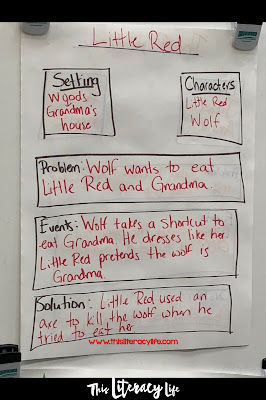 Little Red
Setting
Woods
Grandma's
house
Characters
Little Red
Wolf
Problem: Wolf wants to eat
Little Red and Grandma.
Events: Wolf takes a shortcut to
eat Grandma. He dresses like her.
Little Red pretends the wolf is
Grandma.
Solution: Little Red used an
axe to kill the wolf when he
tried to eat her.
www.thisliteracylife.com
This Literacy Life